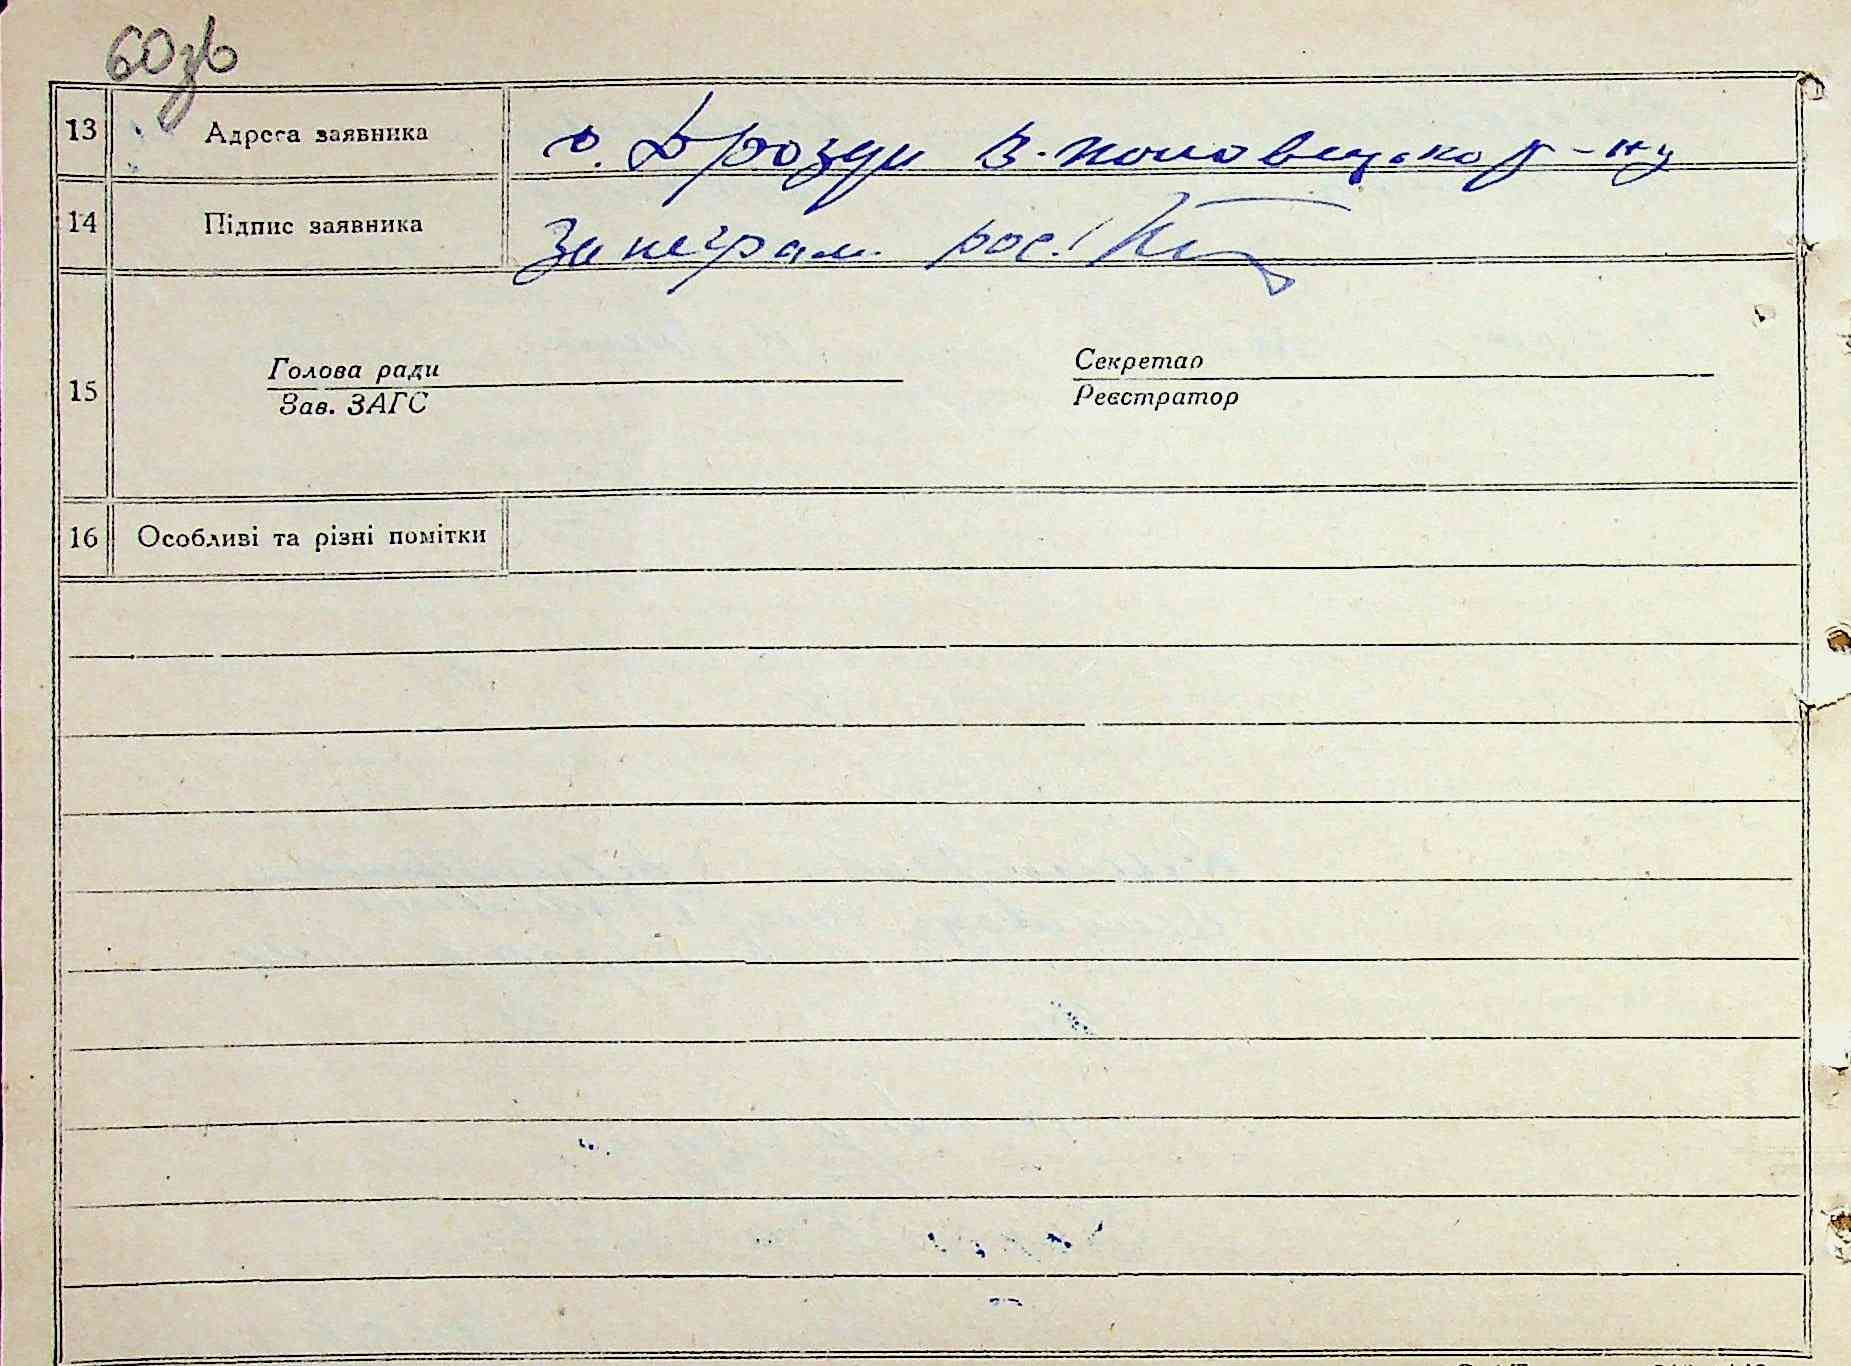 60зв
13 Адреса заявника с. Дрозди В-половецько р-ну
14 Підпис заявника За неграм. рос.
15 Голова ради Секретар
Зав. ЗАГС Реєстратор
16 Особливі та різні помітки